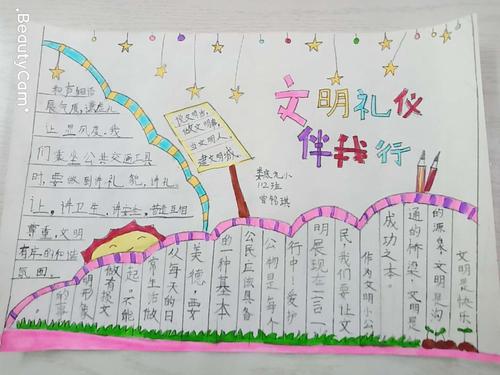 BeautyCam
文明礼仪
伴我行
和声细语
展气度,谦虚礼
让显风度。我
们乘坐公共交通工具
时,要做到讲礼貌,讲礼
让,讲卫生,
尊重,文明
有序的和谐
氛围。
说文明话,
做文明事,
当文明人,
建文明城。
112班
文明是快乐
的源泉,文明是沟
通的桥梁,文明是
成功之本。
作为文明小公
民,我们要让文
明展现在一言一
行中。爱护
公物是每个
公民应该具备
的一种基本
美德,要
从每天的日
常生活做
起。不能
做有损文
明形象
的事